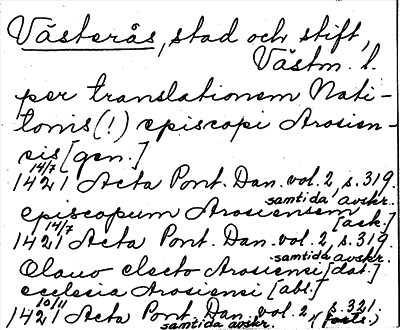 Västerås, stad och stift,
Västm. l.
per translationem Nati-
tonis (!) episcopi Arosien-
sis [gen.]
14/7
1421 Acta Pont. Dan. vol. 2, s. 319.
samtida avskr.
episcopum Arosiensem [ack.]
14/7
1421 Acta Pont. Dan. vol. 2, s. 319.
samtida avskr.
Olauo electo Arosiensi [dat.]
ecclesia Arosiensi [abl.]
10/11
1421 Acta Pont. Dan. vol. 2, s. 321
samtida avskr. (forts.)